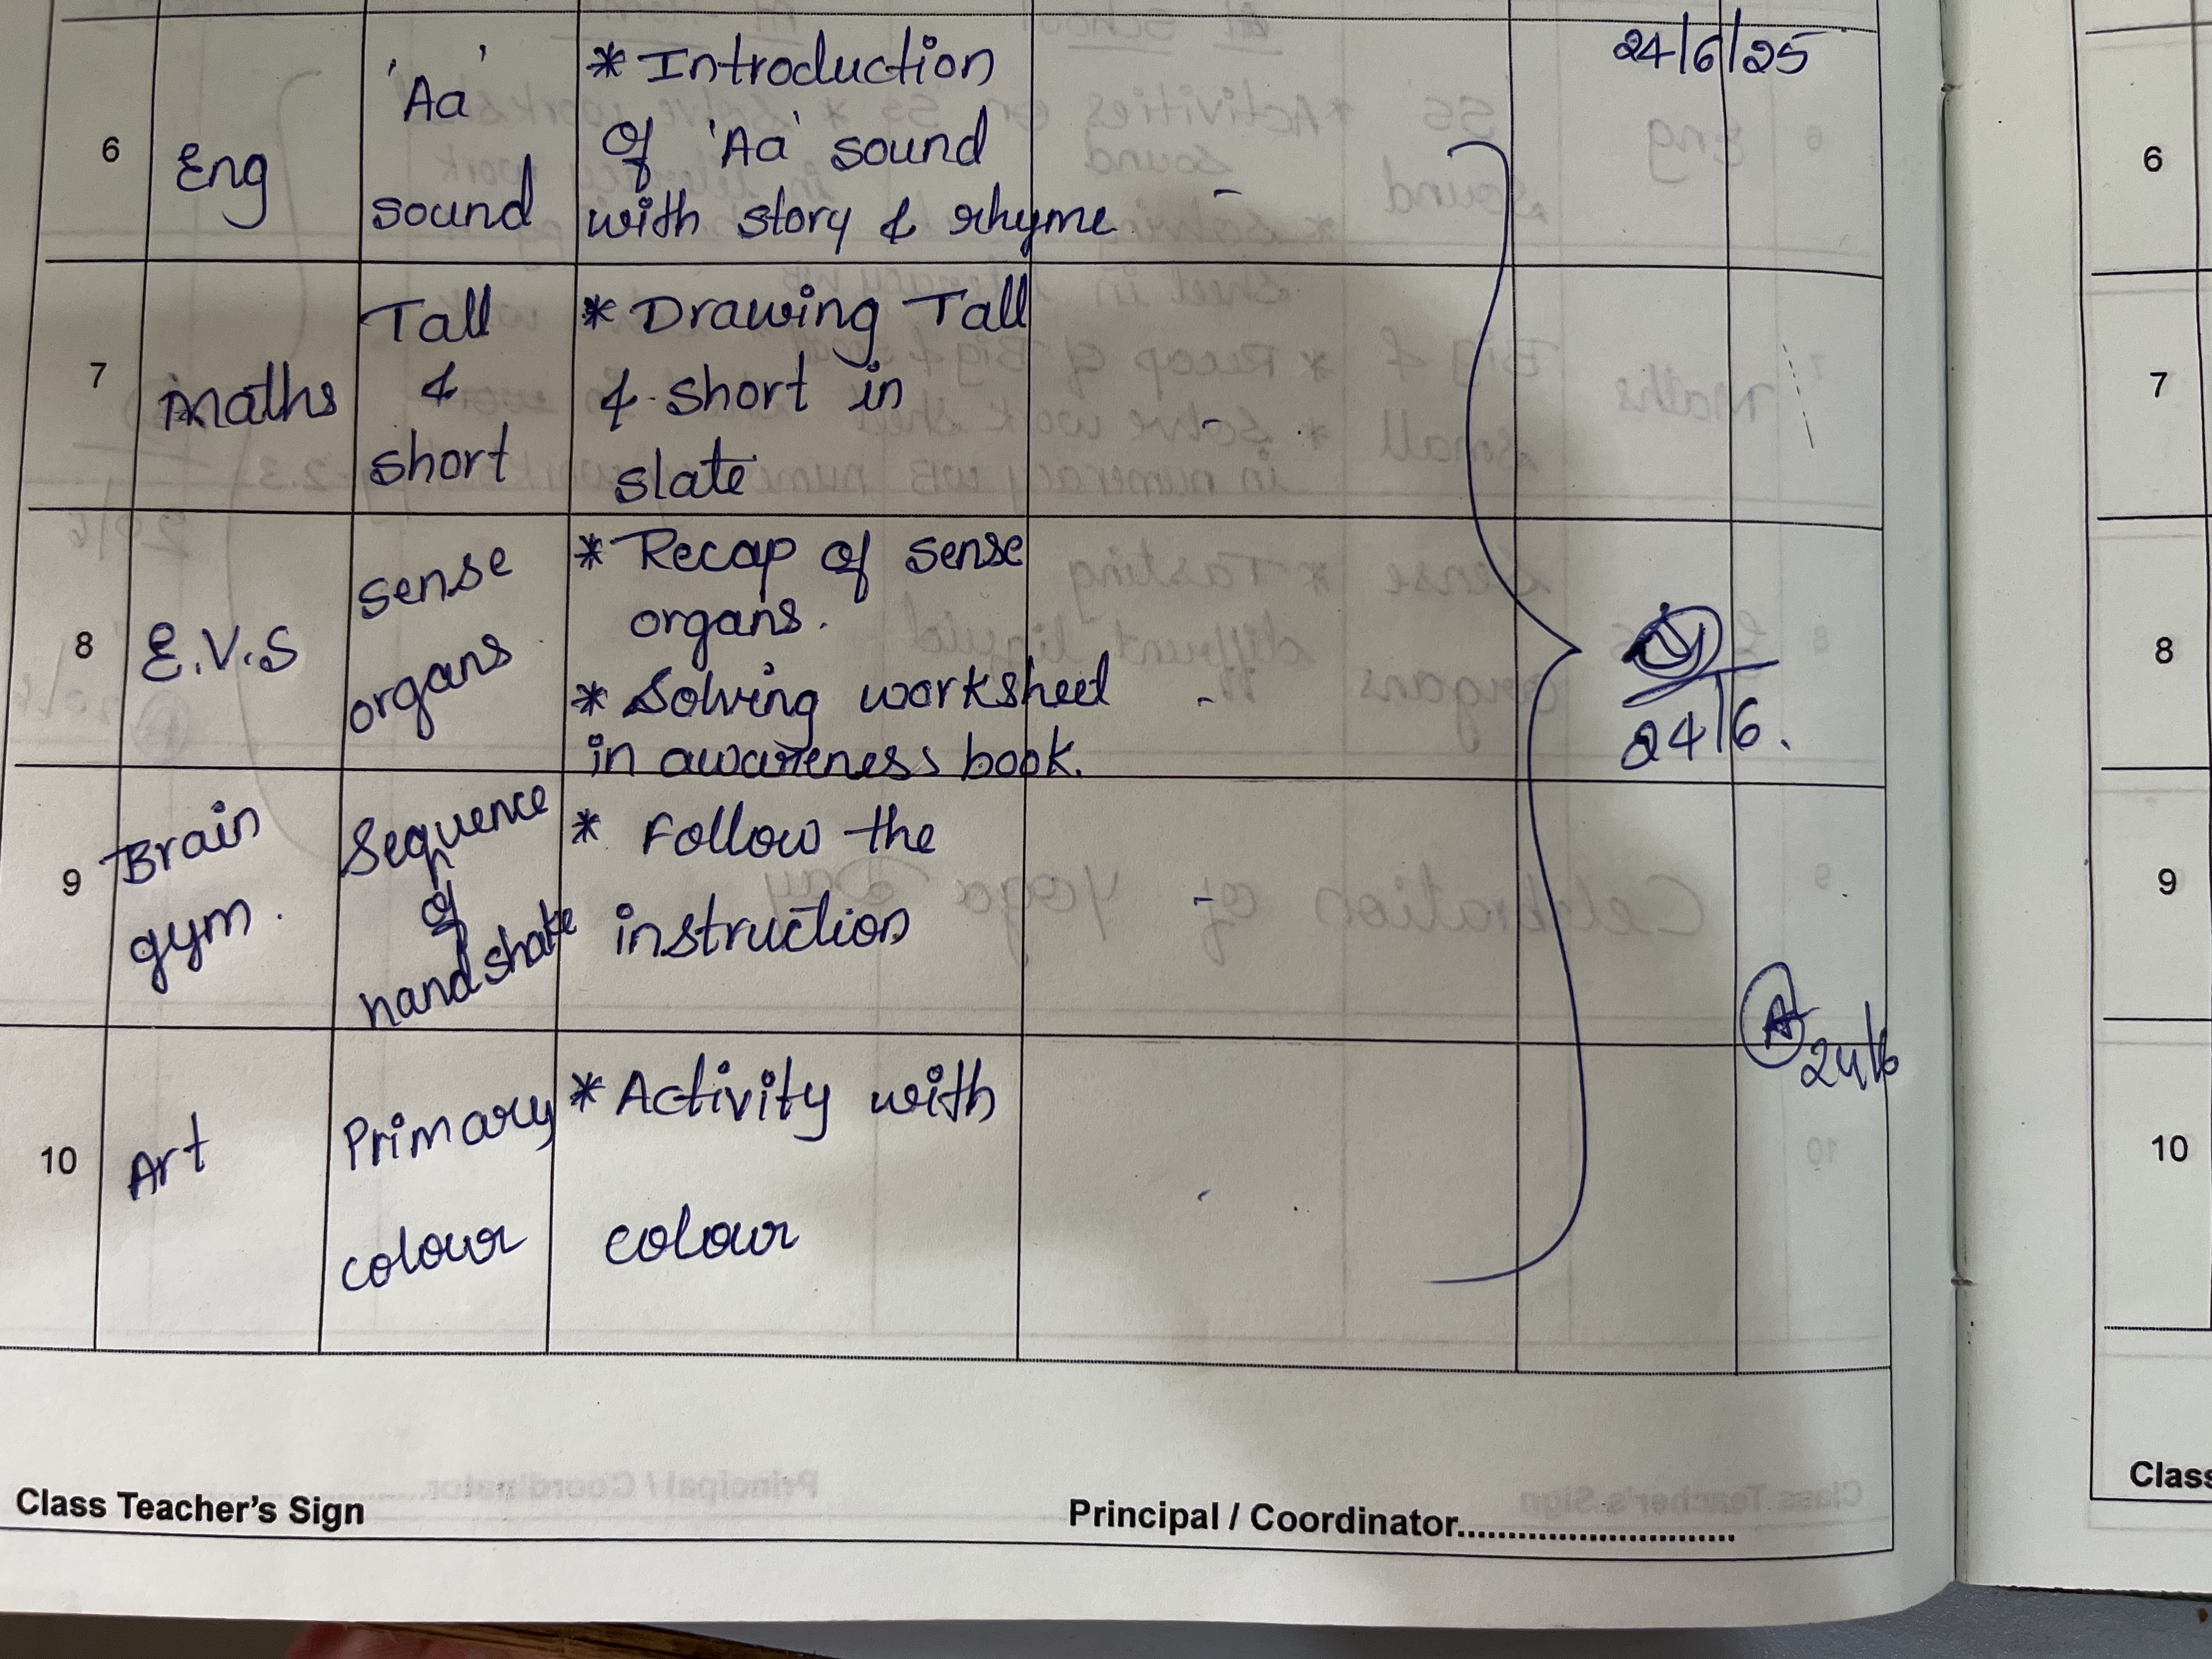 24/6/25
6
Eng
'Aa'
sound
* Introduction
of 'Aa' sound
with story & rhyme
-
7
Maths
Tall
&
short
* Drawing Tall
& short in
slate
-
8
E.V.S
sense
organs
* Recap of sense
organs.
* Solving worksheet
in awareness book.
-
24/6.
9
Brain
gym.
Sequence
of
hand shake
* Follow the
instruction
-
24/6
10
Art
Primary
colour
* Activity with
colour
Class Teacher's Sign
Principal / Coordinator............................
6
7
8
9
10
Class